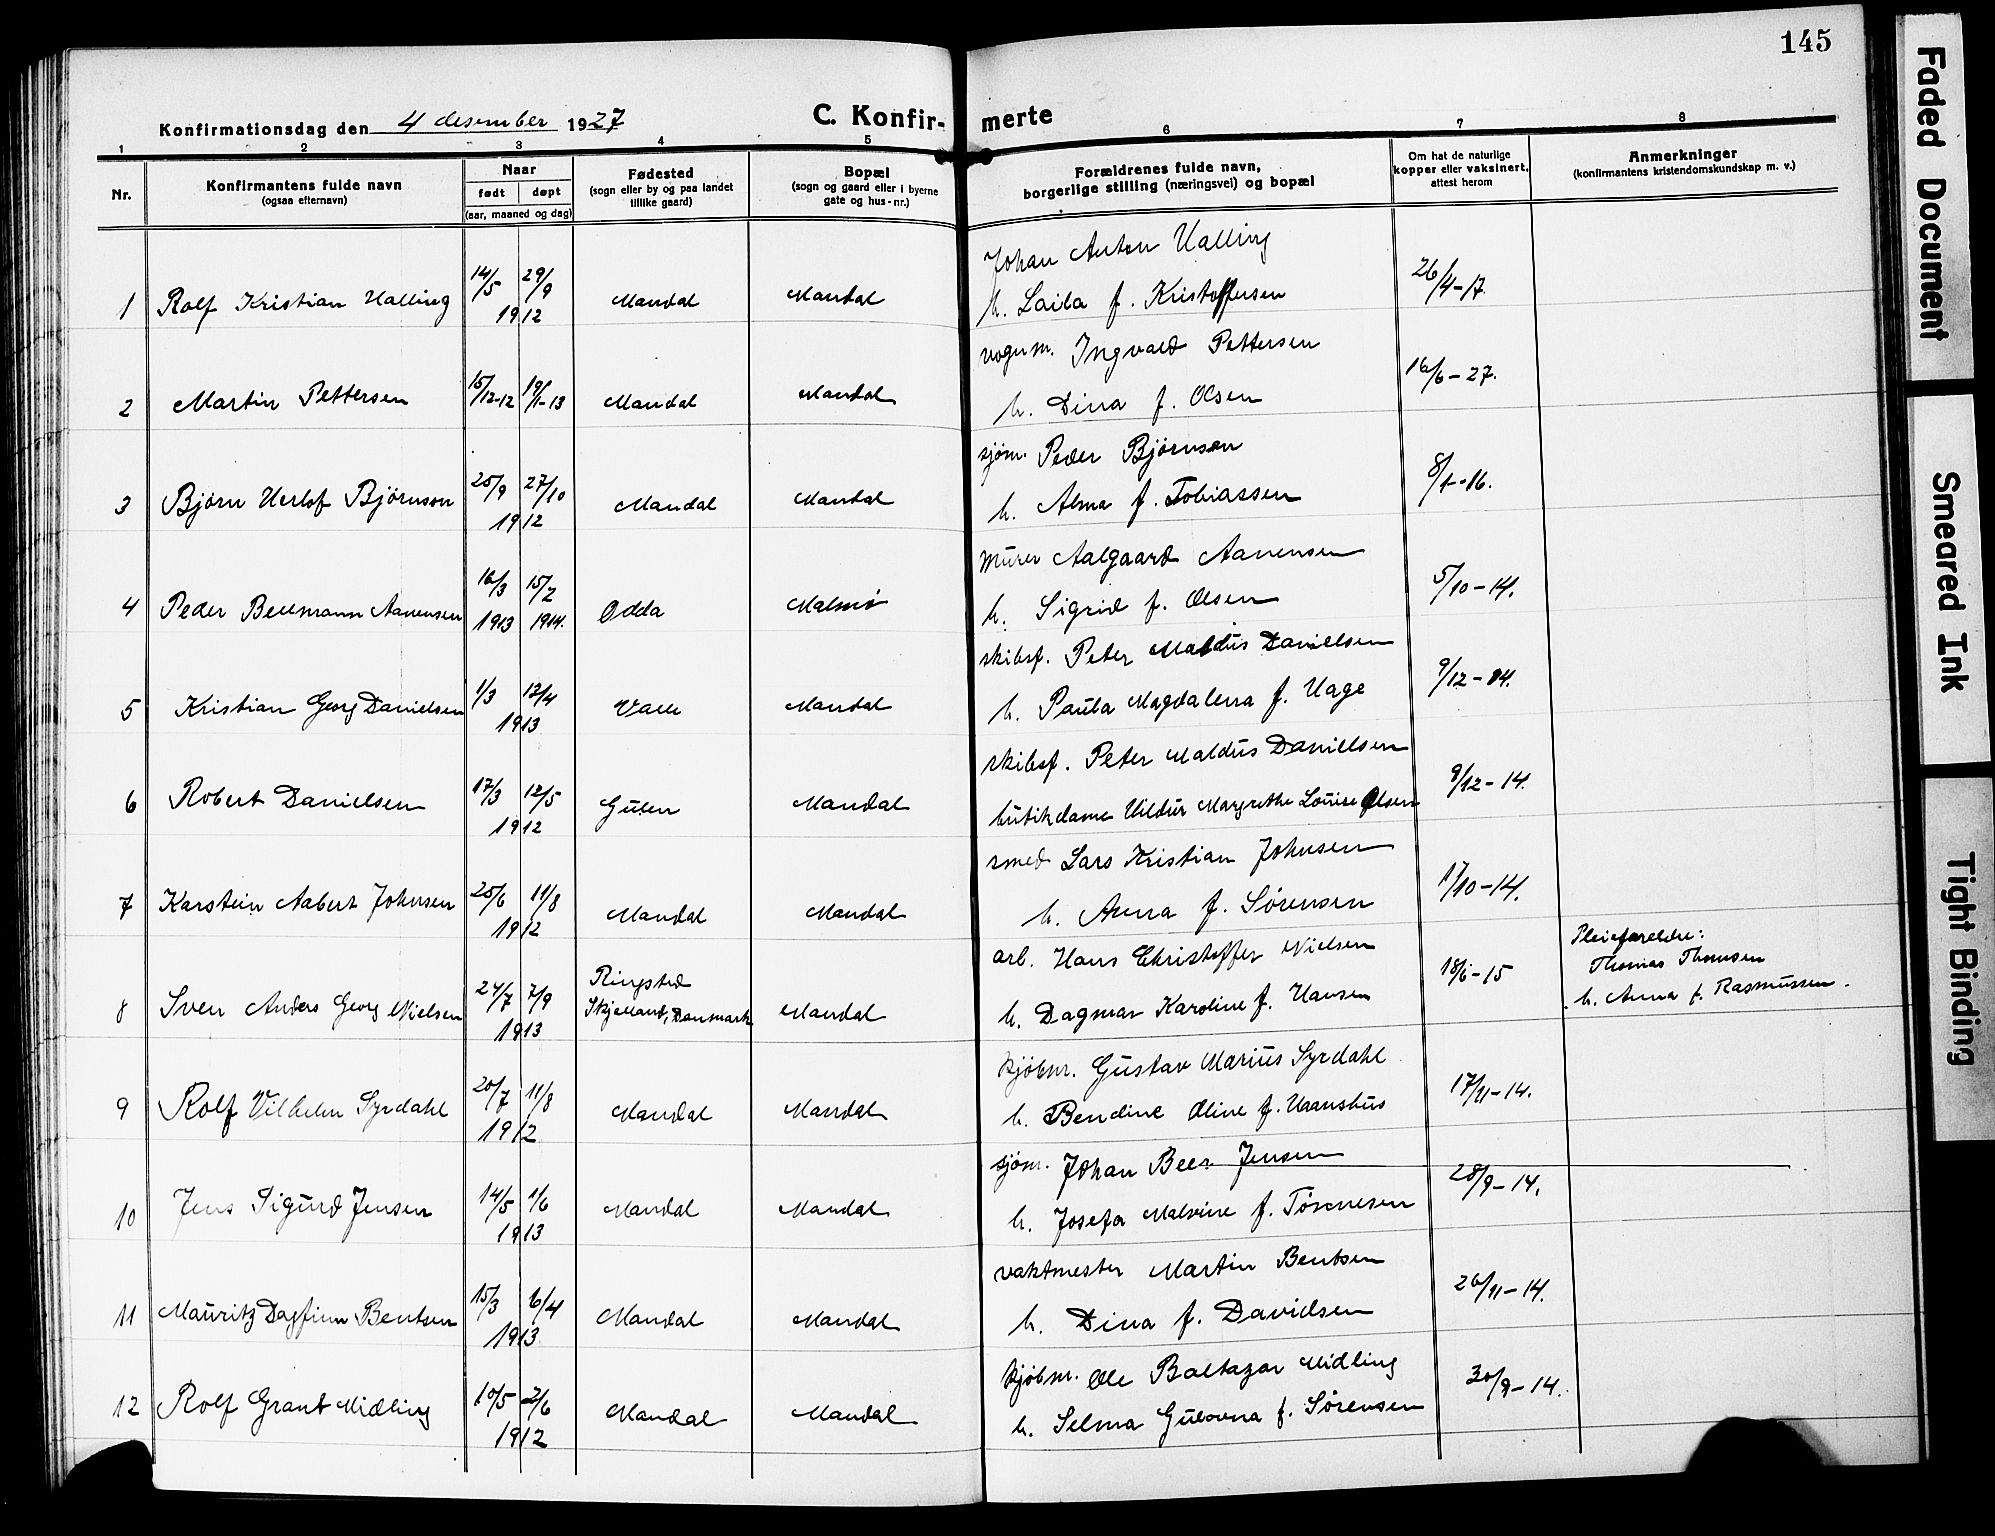 145
Konfirmationsdag den 4 desember 1927
C. Konfir- merte
1 2 3 4 5 6 7 8
Nr.
Konfirmantens fulde navn
(ogsaa efternavn)
Naar
født døpt
(aar, maaned og dag)
Fødested
(sogn eller by og paa landet
tillike gaard)
Bopæl
(sogn og gaard eller i byerne
gate og hus-nr.)
Forældrenes fulde navn,
borgerlige stilling (næringsvei) og bopæl
Om hat de naturlige
kopper eller vaksinert,
attest herom
Anmerkninger
(konfirmantens kristendomskundskap m. v.)
Johan Anton Halling
1 Rolf Kristian Halling 14/5 29/9 1912 Mandal Mandal h. Laila f. Kristoffersen 26/4-17.
vognm. Ingvald Pettersen
2 Martin Pettersen 15/12-12 19/1-13 Mandal Mandal h. Dina f. Olsen 16/6-27.
sjøm. Peder Bjørnson
3 Bjørn Herlof Bjørnson 25/9 27/10 1912 Mandal Mandal h. Alma f. Tobiassen 8/1-16.
Murer Aalgaard Aanensen
4 Peder Bellmann Aanensen 16/3 1913 15/2 1914. Odda Malmø h. Sigrid f. Olsen 5/10-14.
skibsf. Peter Maldus Danielsen
5 Kristian Georg Danielsen 1/3 12/4 1913 Valle Mandal h. Paula Magdalena f. Hage 9/12-14.
skibsf. Peter Maldus Danielsen
6 Robert Danielsen 17/3 12/5 1912 Gulen Mandal butikdame Hildur Margrethe Louise Olsen 9/12-14.
smed Lars Kristian Johnsen
7 Karstein Aabert Johnsen 25/6 11/8 1912 Mandal Mandal h. Anna f. Sørensen 17/10-14.
arb. Hans Christoffer Nielsen
8 Sven Anders Georg Nielsen 24/7 7/9 1913 Ringsted Skjelland, Danmark Mandal h. Dagmar Karoline f. Hansen 18/1-15
Pleieforeldre:
Thomas Thomsen
h. Anna f. Rasmussen.
kjøbm. Gustav Marius Syrdahl
9 Rolf Vilhelm Syrdahl 20/7 11/8 1912 Mandal Mandal h. Bendine Oline f. Haanshus 17/11-14.
sjøm. Johan Beer Jensen
10 Jens Sigurd Jensen 14/5 1/6 1913 Mandal Mandal h. Josefa Malvine f. Tønnesen 28/9-14.
vaktmester Martin Bentsen
11 Mauritz Dagfinn Bentsen 15/3 6/4 1913 Mandal Mandal h. Dina f. Davidsen 26/11-14.
kjøbm. Ole Baltazar Midling
12 Rolf Grant Midling 10/5 2/6 1912 Mandal Mandal h. Selma Gulovna f. Sørensen 30/9-14.
Faded Document
Smeared Ink
Tight Binding